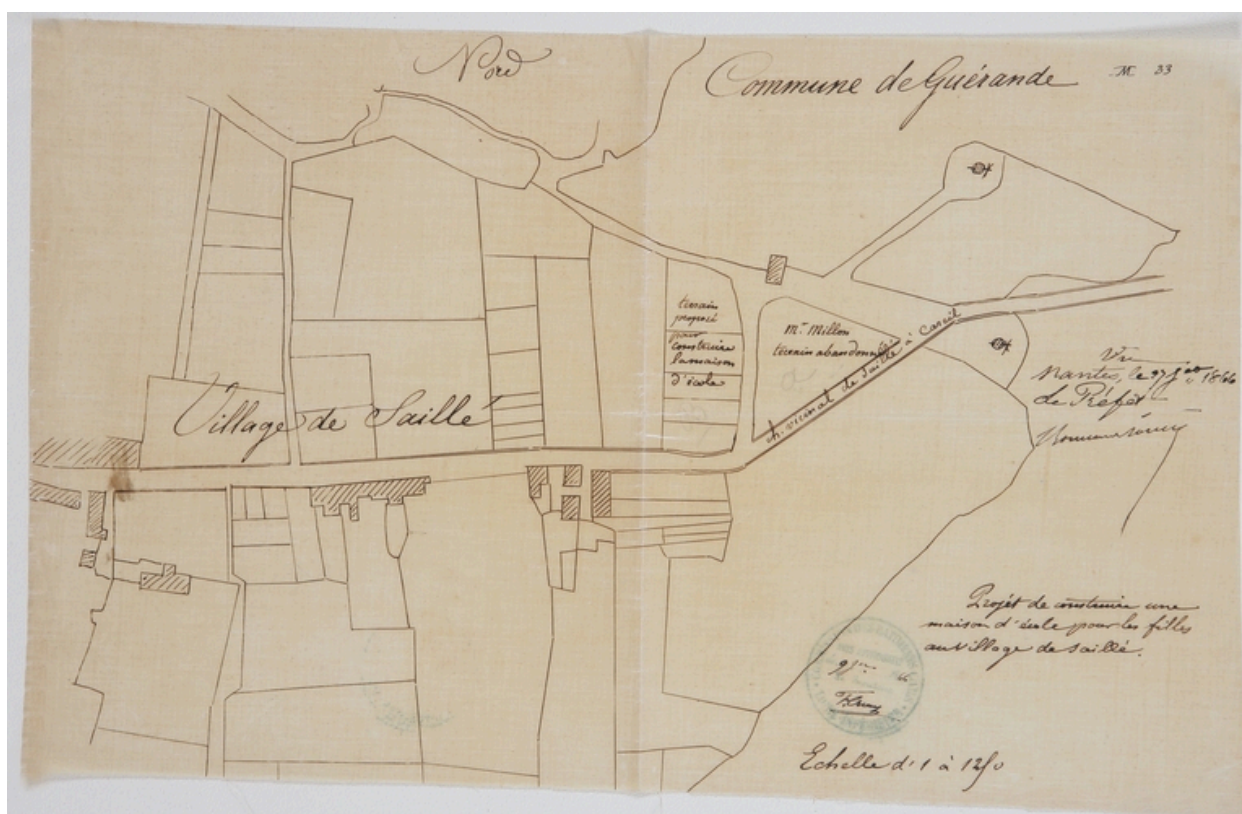 Nord
Commune de Guérande
M 33
terrain
proposé
pour
construire
la maison
d'école
Mr. Millon
terrain abandonné
ch. vicinal de Saillé à Careil
Village de Saillé
Vu
Nantes, le 1866
Le Préfet
Projèt de construire une
maison d'école pour les filles
au village de Saillé.
Echelle d'1 à 1250